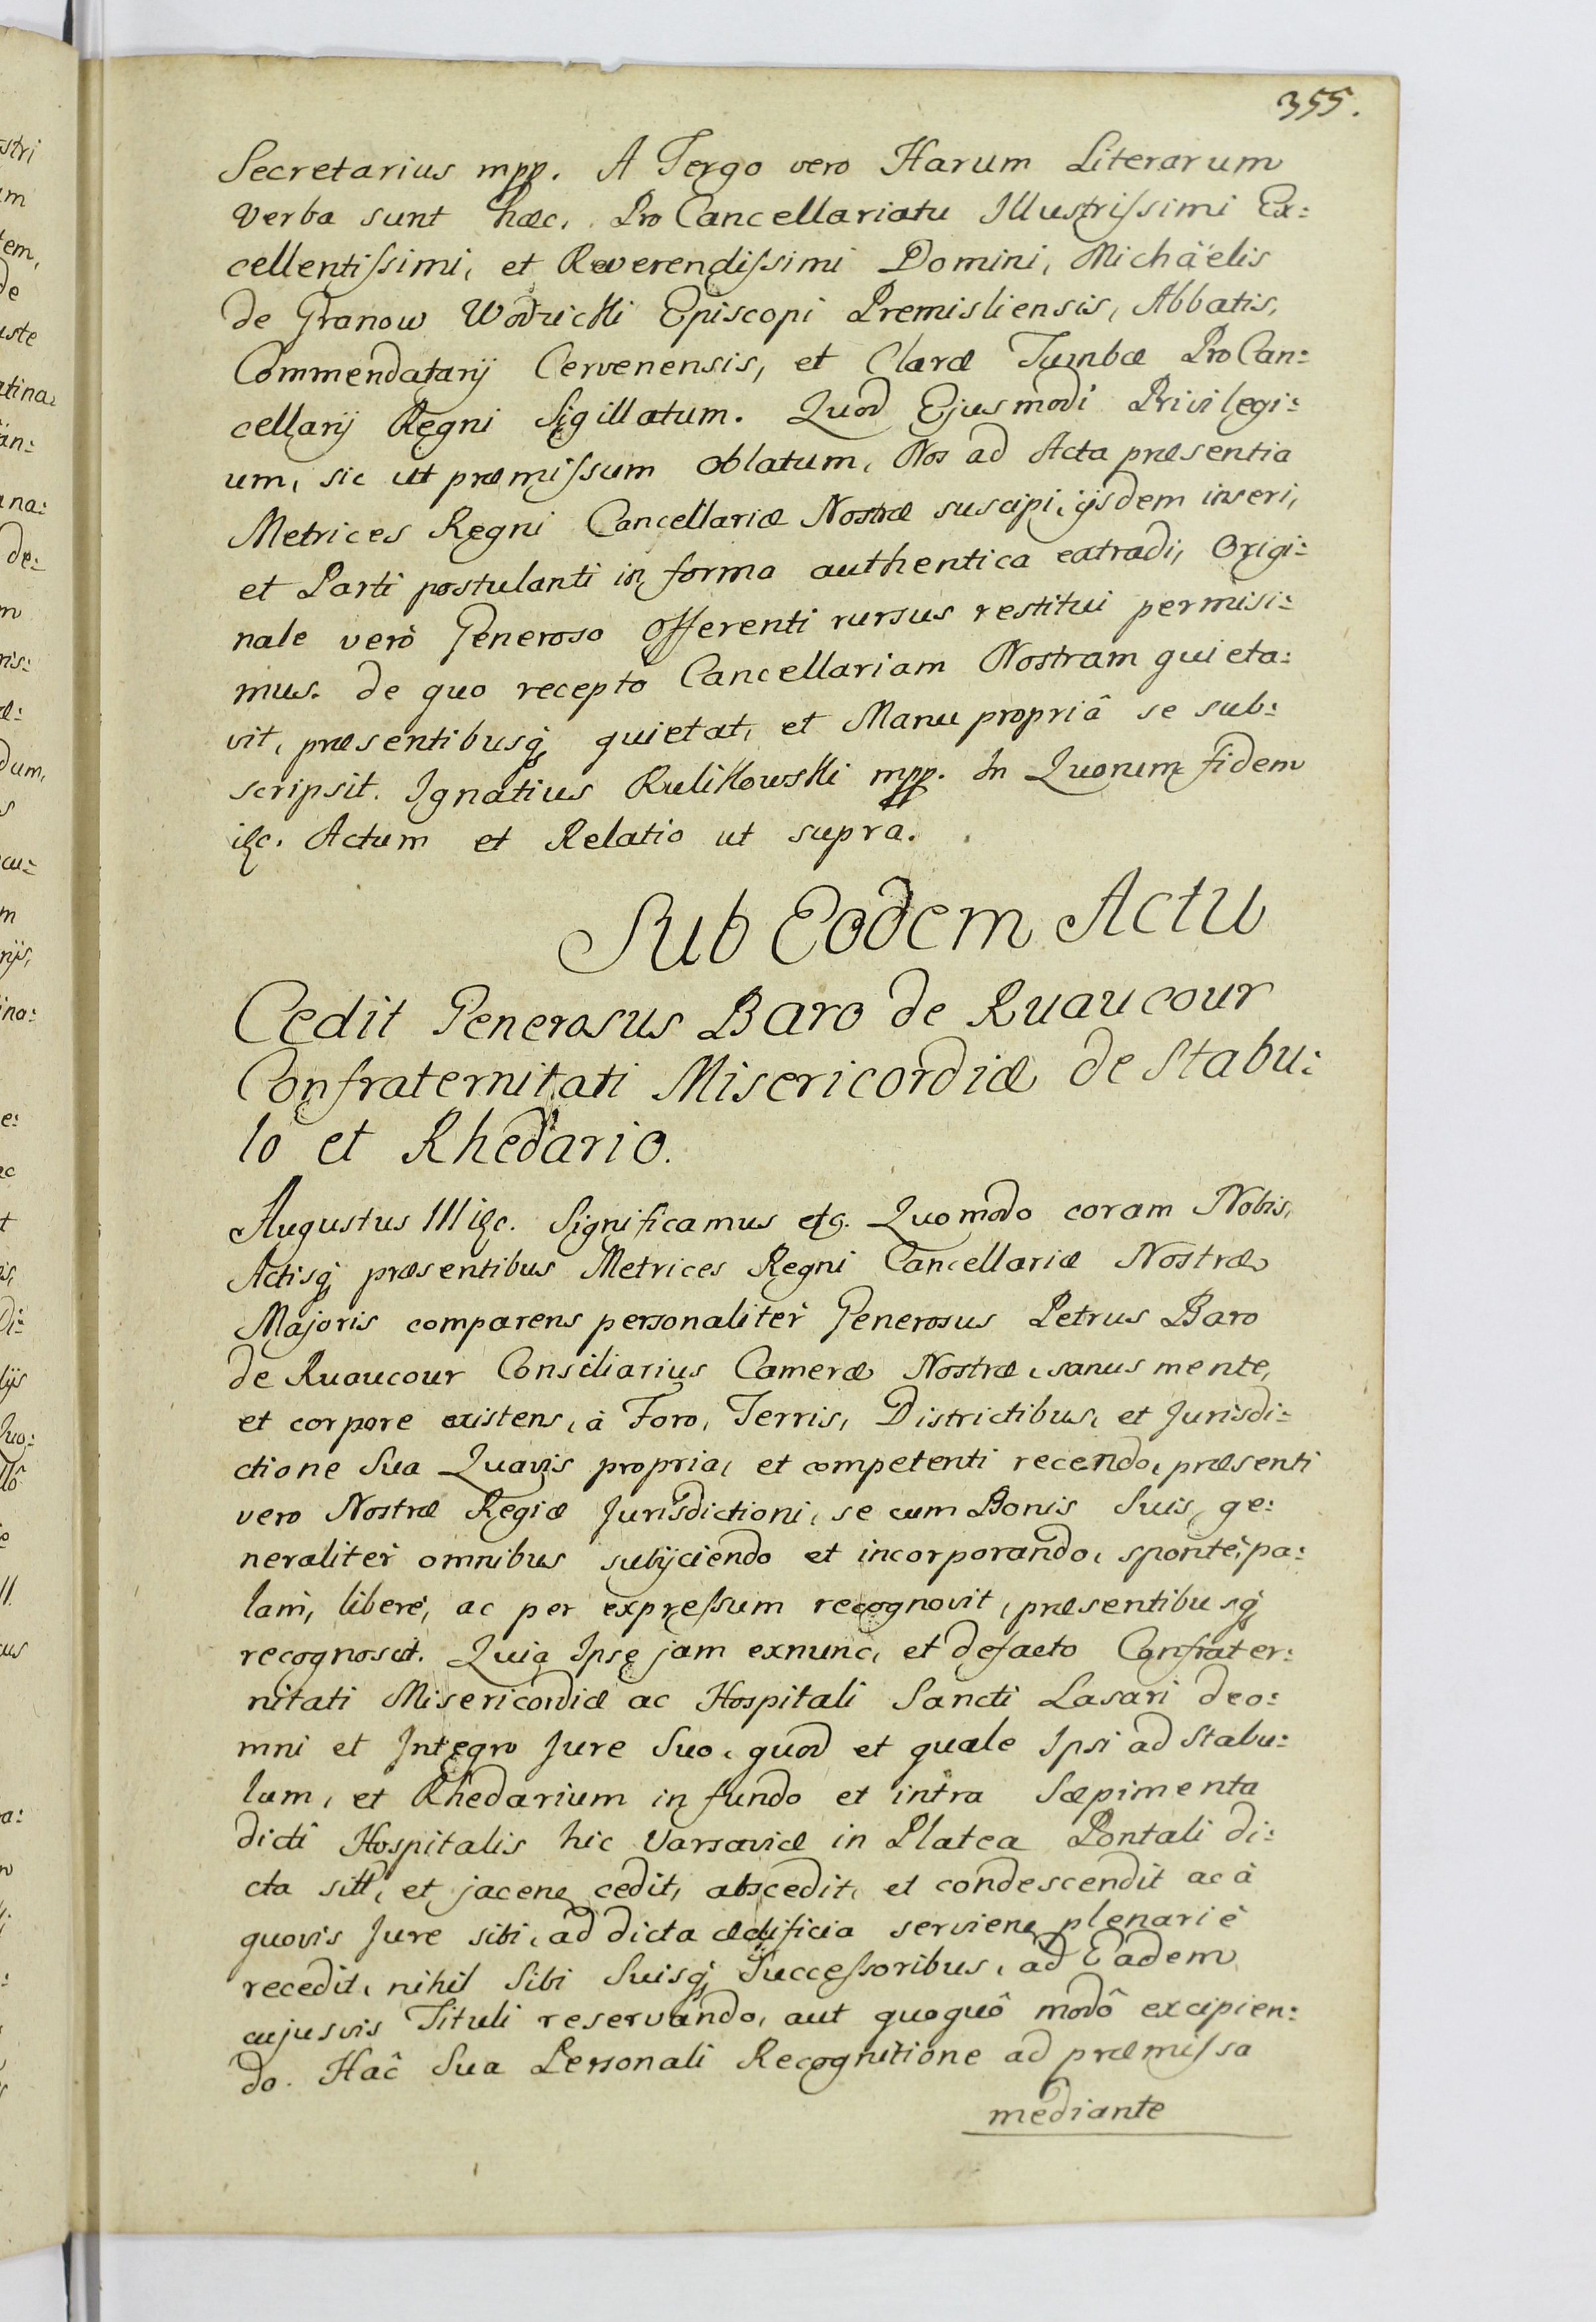 355.
Secretarius mpp. A Tergo vero Harum Literarum
verba sunt hæc. Pro Cancellariatu Illustrissimi Ex:
cellentissimi, et Reverendissimi Domini, Michäelis
de Granow Wodzicki Episcopi Premisliensis, Abbatis,
Commendatarij Cervenensis, et Claræ Tumbæ ProCan:
cellarij Regni Sigillatum. Quod Ejusmodi Privilegi:
um, sic ut præmissum oblatum, Nos ad Acta præsentia
Metrices Regni Cancellariæ Nostræ suscipi, ijsdem inseri,
et Parti postulanti in forma authentica extradi, Origi:
nale verò Generoso Offerenti rursus restitui permisi:
mus. de quo recepto Cancellariam Nostram quieta:
vit, præsentibusq, quietat, et Manu propriâ se sub:
scripsit. Ignatius Kulikowski mpp. In Quorum fidem
i&c. Actum et Relatio ut supra.
Sub Eodem Actu
Cedit Generosus Baro de Ruaucour
Confraternitati Misericordiæ de Stabu:
lo et Rhedario.
Augustus III i&c. Significamus etc. Quomodo coram Nobis,
Actisq, præsentibus Metrices Regni Cancellariæ Nostræ
Majoris comparens personalitèr Generosus Petrus Baro
de Ruaucour Consiliarius Cameræ Nostræ, sanus mente,
et corpore existens, à Foro, Terris, Districtibus, et Jurisdi:
ctione Sua Quavis propria, et competenti recendo, præsenti
vero Nostræ Regiæ Jurisdictioni, se cum Bonis Suis, ge:
neralitèr omnibus subijciendo et incorporando, spontè, pa:
làm, liberè, ac per expressum recognovit, præsentibusq,
recognoscit. Quia Ipse jam exnunc, et defacto Confrater:
nitati Misericordiæ ac Hospitali Sancti Lasari deo:
mni et Integro Jure Suo, quod et quale Ipsi ad Stabu:
lum, et Rhedarium in fundo et intra Sæpimenta
dicti Hospitalis hic Varsaviæ in Platea Pontali di:
cta sitt, et jacen, cedit, abscedit, et condescendit ac à
quovis Jure sibi, ad dicta ædificia servien, plenariè
recedit, nihil Sibi Suisq, Successoribus, ad Eadem
cujusvis Tituli reservando, aut quoquô modô excipien:
do. Hâc Sua Personali Recognitione ad præmissa
mediante